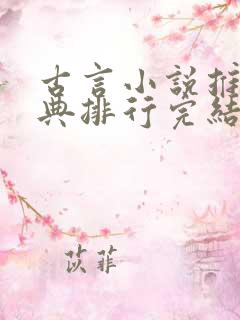 古言小说推
典排行完结
苡菲